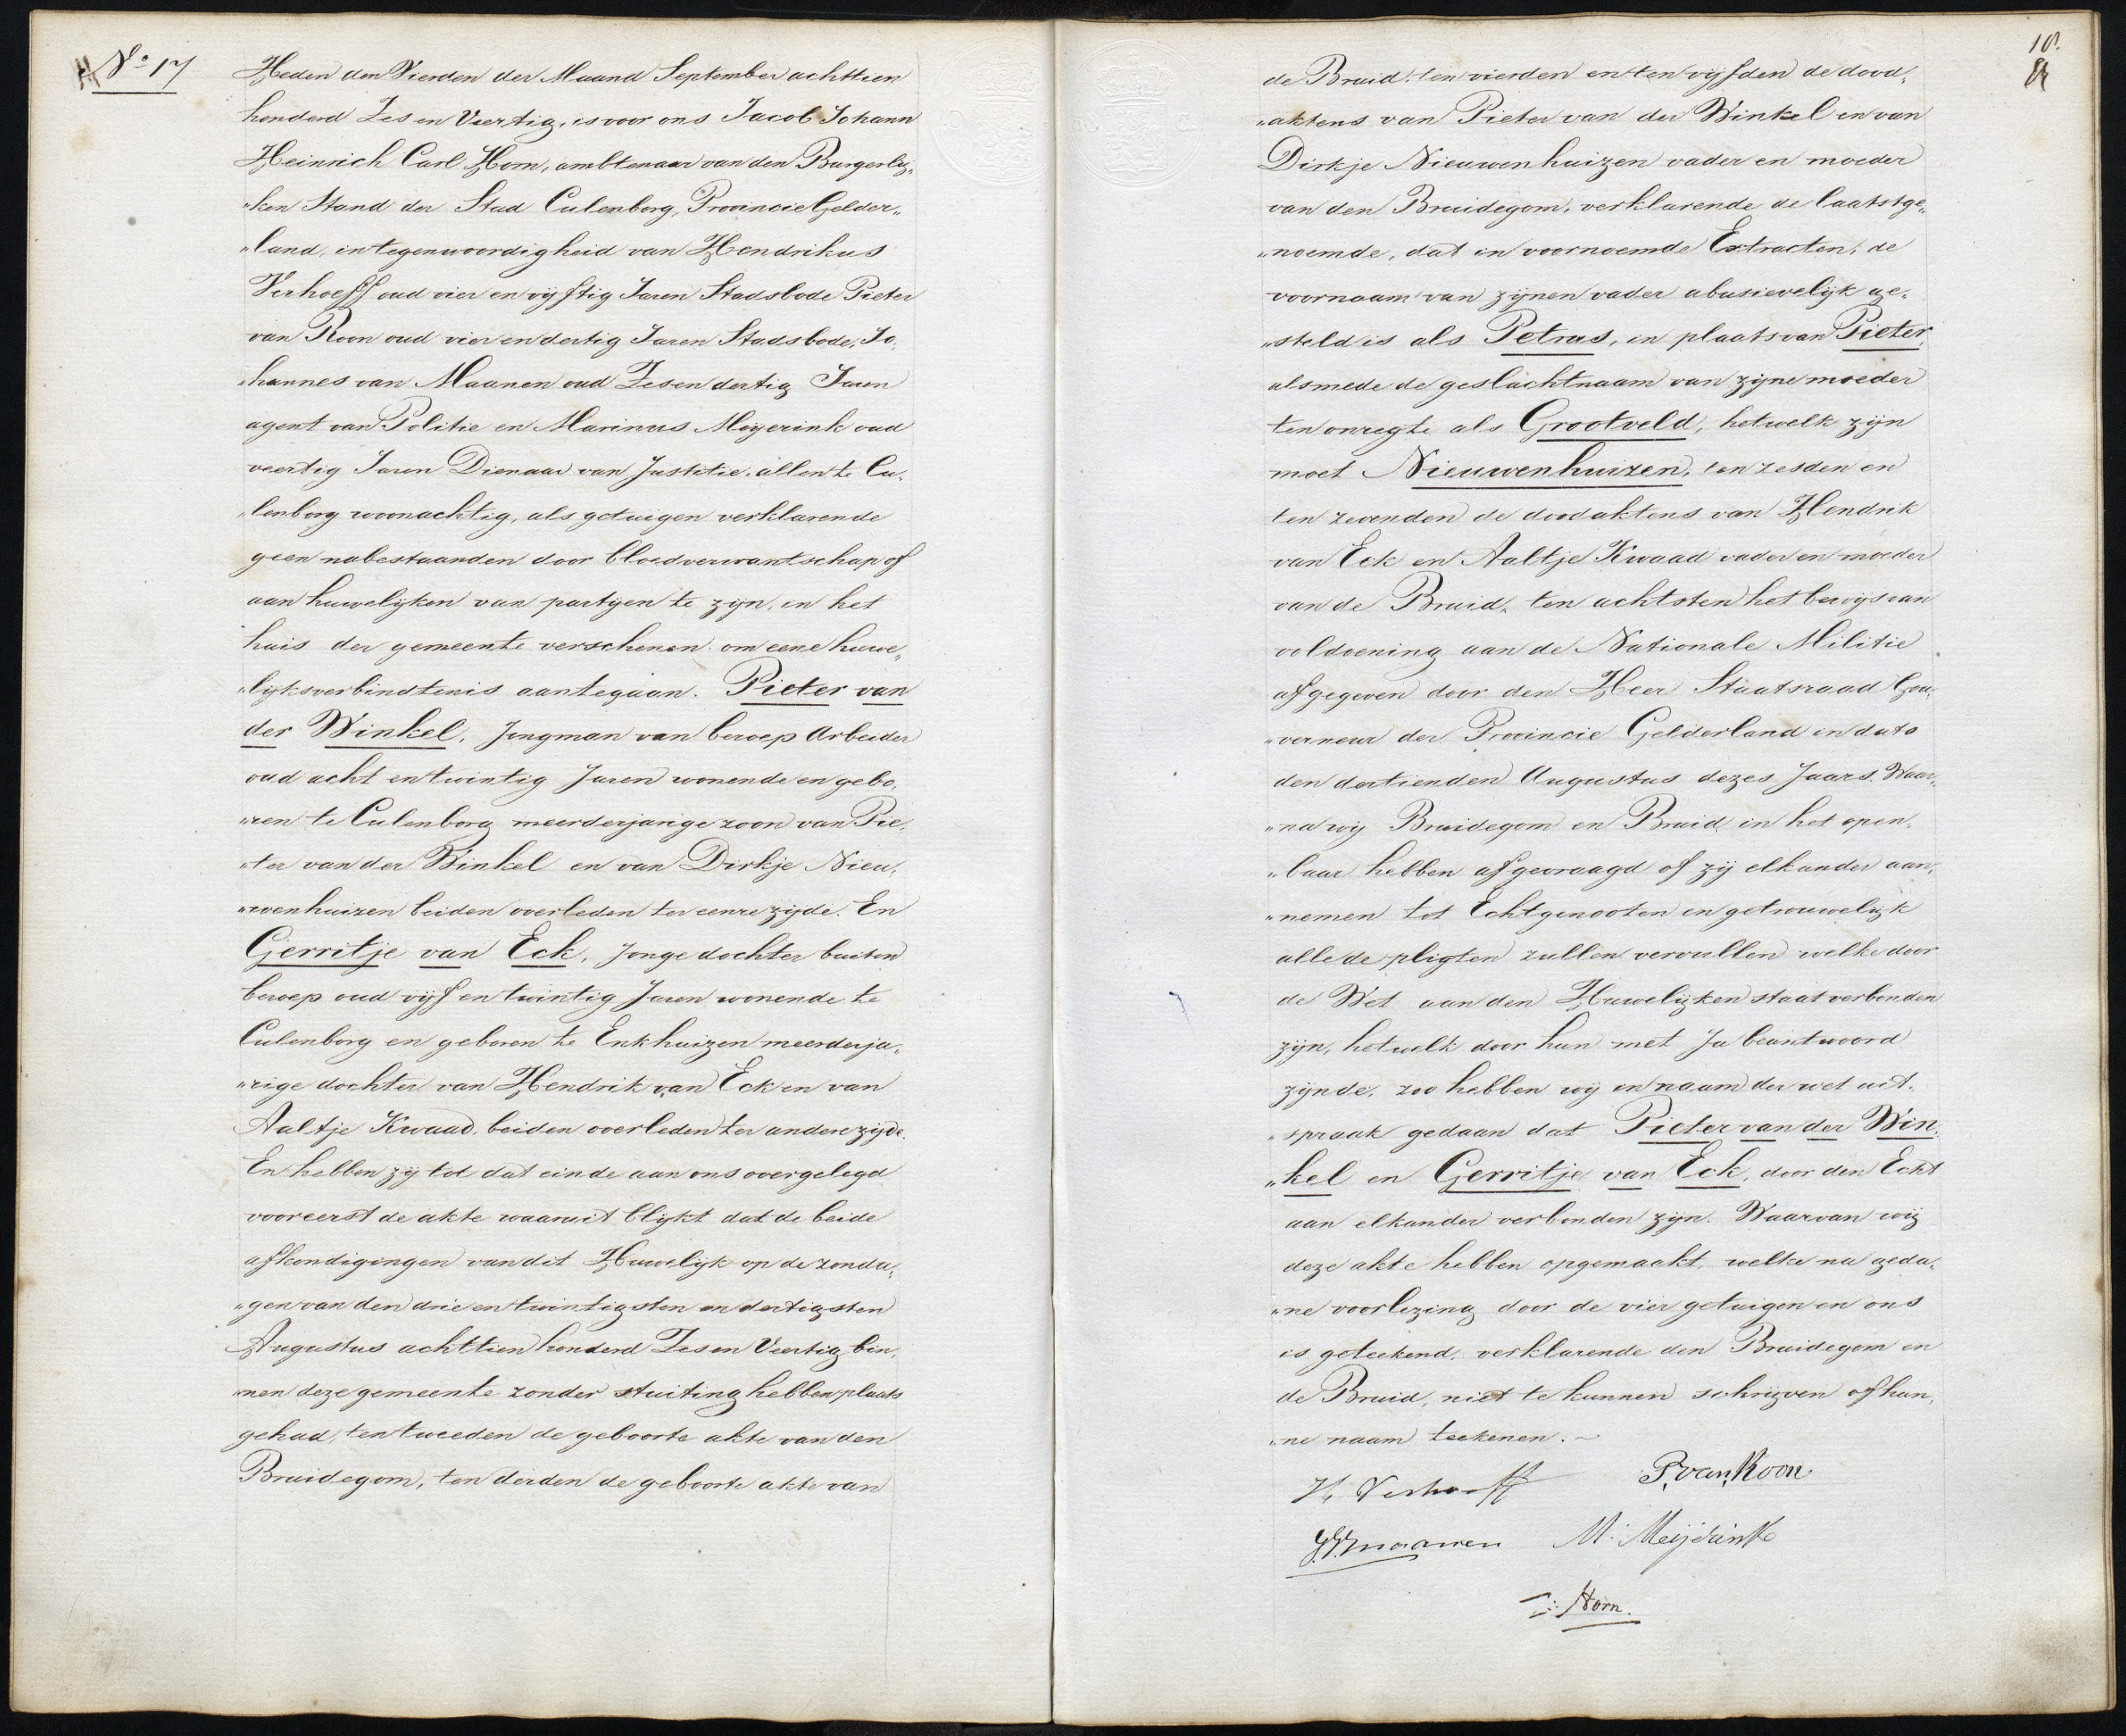 No 17
Heden den Vierden der Maand September achttien
honderd Zes en Veertig, is voor ons Jacob Johann
Heinrich Carl Horn, ambtenaar van den Burgerly„
„ken Stand der Stad Culenborg, Provincie Gelder„
„land, in tegenwoordigheid van Hendrikus
Verhoeff oud vier en vyftig Jaren Stadsbode Pieter
van Roon oud vier en dertig Jaren Stadsbode, Jo„
„hannes van Maanen oud Zes en dertig Jaren
agent van Politie en Marinus Meyerink oud
veertig Jaren Dienaar van Justitie. allen te Cu„
„lenborg woonachtig, als getuigen verklarende
geen nabestaanden door bloedverwantschap of
aan huwelyken van partyen te zyn, in het
huis der gemeente verschenen om eene huwe„
„lyksverbindtenis aantegaan. Pieter van
der Winkel, Jongman van beroep Arbeider
oud acht en twintig Jaren wonende en gebo„
„ren te Culenborg meerderjarige zoon van Pie„
„ter van der Winkel en van Dirkje Nieu„
„wenhuizen beiden overleden ter eenre zyde. En
Gerritje van Eck, Jonge dochter buiten
beroep oud vyf en twintig Jaren wonende te
Culenborg en geboren te Enkhuizen meerderja„
„rige dochter van Hendrik van Eck en van
Aaltje Kwaad, beiden overleden ter andere zyde.
En hebben zy tot dat einde aan ons overgelegd
vooreerst de akte waaruit blykt dat de beide
afkondigingen van dit Huwelyk op de zonda„
„gen van den drie en twintigsten en dertigsten
Augustus achttien honderd Zes en Veertig bin„
„nen deze gemeente zonder stuiting hebben plaats
gehad, ten tweeden de geboorte akte van den
Bruidegom, ten derden de geboorte akte van
10.
de Bruid. ten vierden en ten vyfden de dood„
„aktens van Pieter van der Winkel en van
Dirkje Nieuwenhuizen vader en moeder
van den Bruidegom, verklarende de laatstge„
„noemde, dat in voornoemde Extracten, de
voornaam van zynen vader abusievelyk ge„
„steld is als Petrus, in plaats van Pieter,
alsmede de geslachtnaam van zyne moeder
ten onregte als Grootveld, hetwelk zyn
moet Nieuwenhuizen, ten zesden en
ten zevenden de doodaktens van Hendrik
van Eck en Aaltje Kwaad vader en moeder
van de Bruid, ten achtsten het bewys van
voldoening aan de Nationale Militie
afgegeven door den Heer Staatsraad Gou„
„verneur der Provincie Gelderland in dato
den dertienden Augustus dezes Jaars. Waar„
„na wy Bruidegom en Bruid in het open„
„baar hebben afgevraagd of zy elkander aan„
„nemen tot Echtgenooten en getrouwelyk
alle de pligten zullen vervullen welke door
de Wet aan den Huwelyken staat verbonden
zyn, hetwelk door hun met Ja beantwoord
zynde, zoo hebben wy in naam der wet uit„
„spraak gedaan dat Pieter van der Win„
„kel en Gerritje van Eck, door den Echt
aan elkander verbonden zyn. Waarvan wy
deze akte hebben opgemaakt, welke na geda„
„ne voorlezing door de vier getuigen en ons
is geteekend, verklarende den Bruidegom en
de Bruid, niet te kunnen schryven of hun„
„ne naam teekenen.
H. Verhoeff P. van Roon
J. V. Maanen M. Meijerink
Horn.